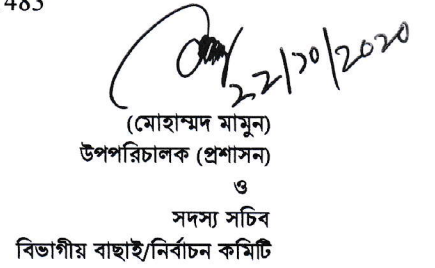 483
22/10/2020
(মোহাম্মদ মামুন)
উপপরিচালক (প্রশাসন)
ও
সদস্য সচিব
বিভাগীয় বাছাই/নির্বাচন কমিটি